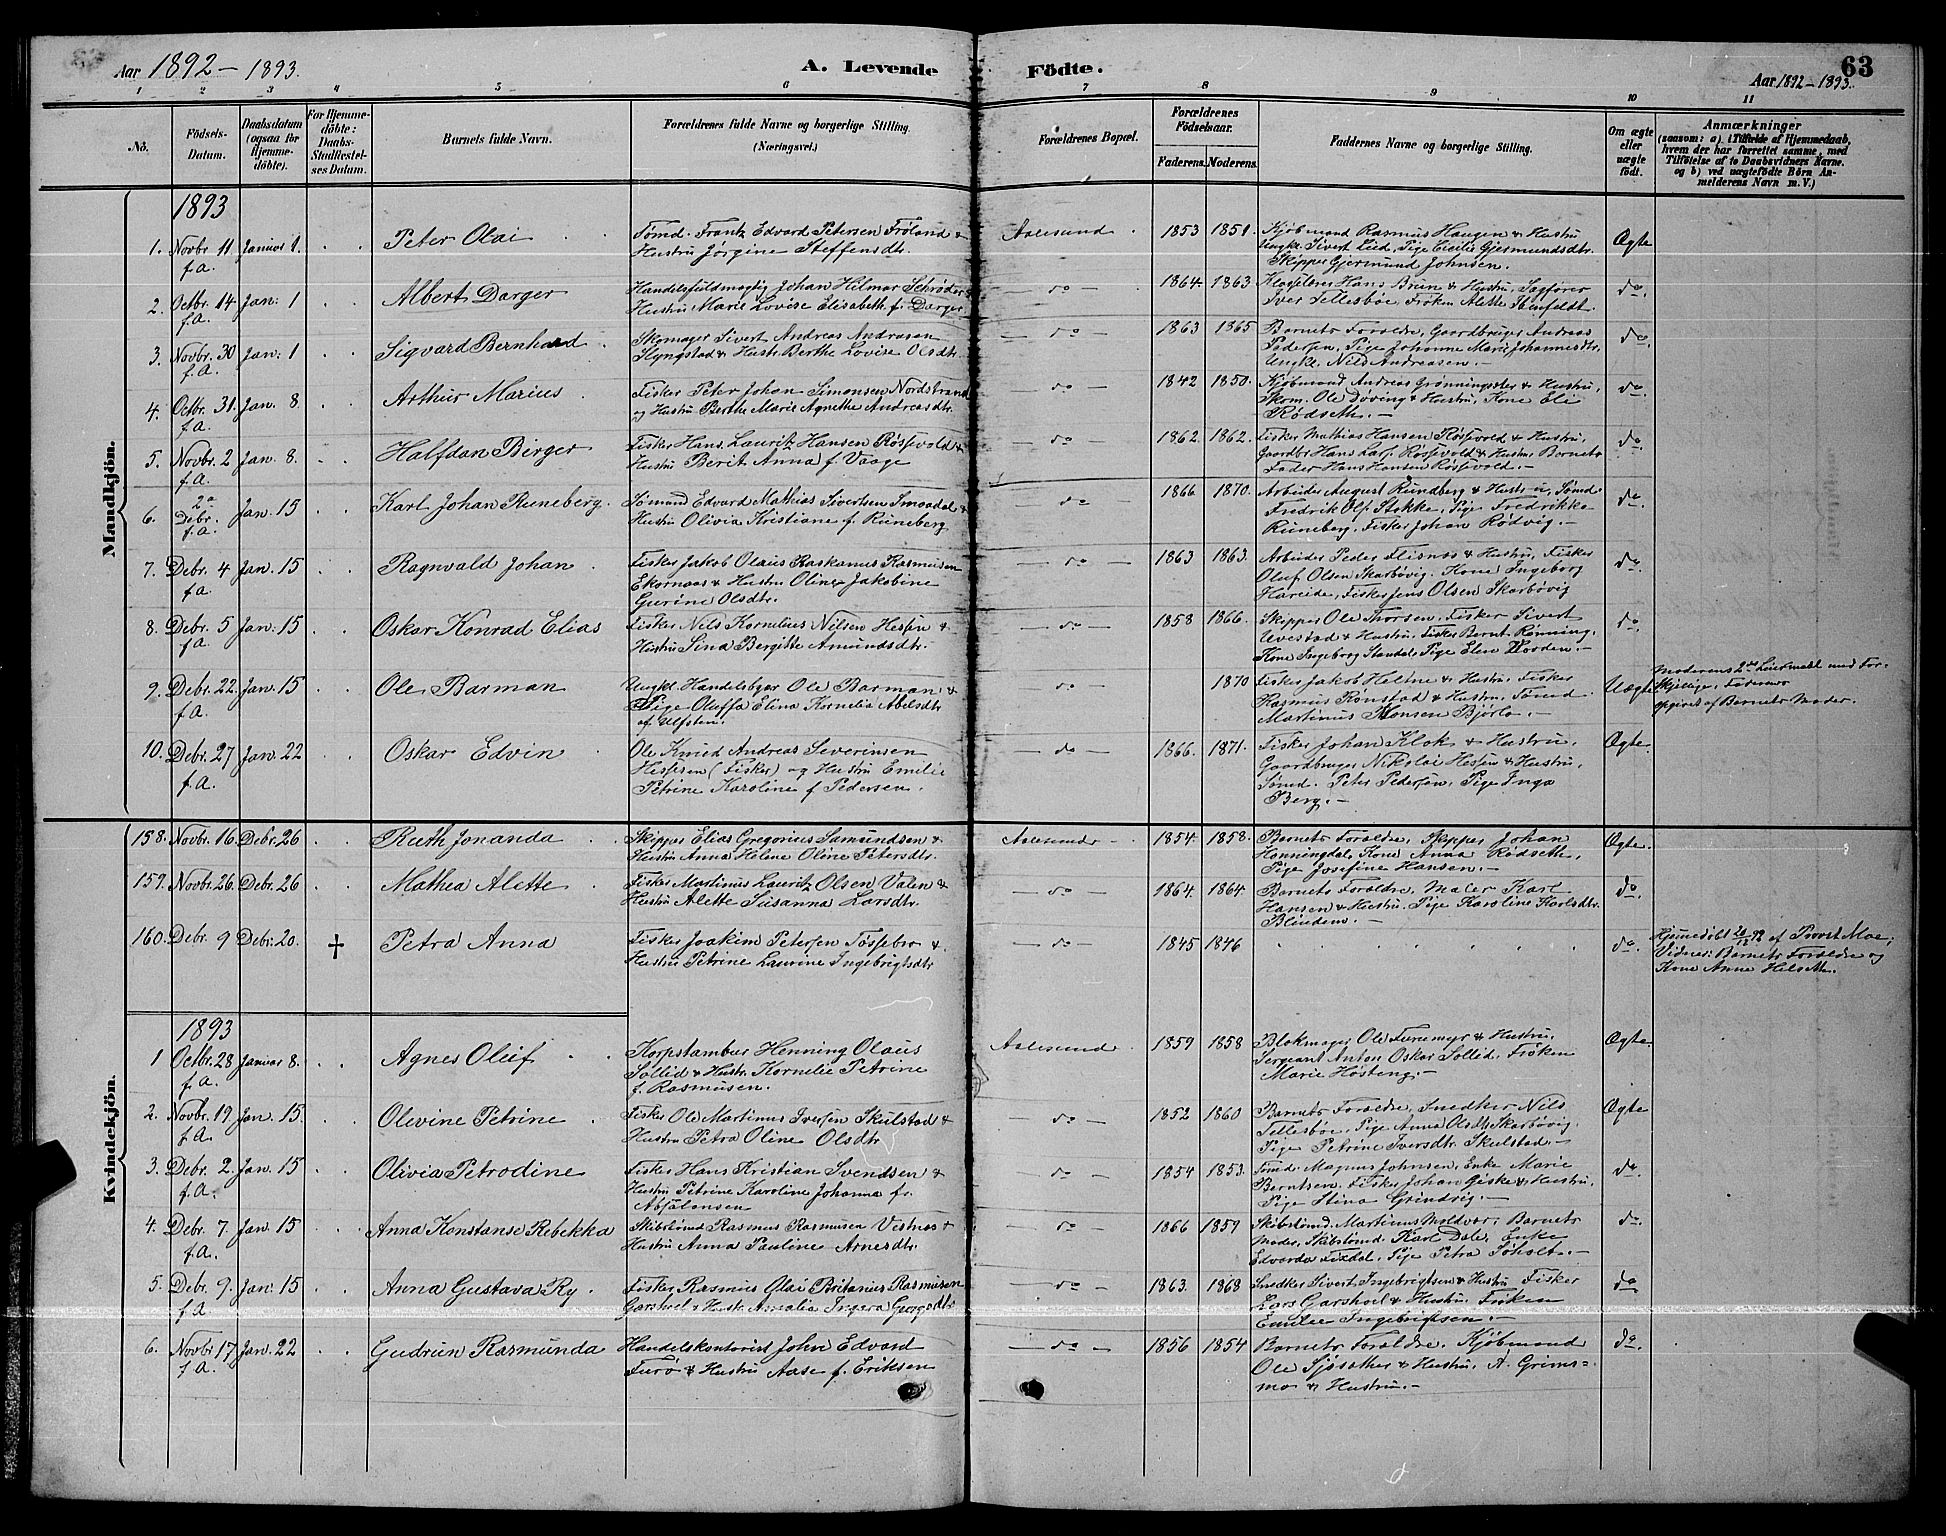 Aar 1892 - 1893.
A. Levende Födte.
63
Aar 1892 - 1893.
1 2 3 4 5 6 7 8 9 10 11
No.
Födsels-Datum.
Daabsdatum (ogsaa for Hjemmedöbte).
For Hjemmedöbte: Daabs-Stadfæstelses Datum.
Barnets fulde Navn.
Forældrenes fulde Navne og borgerlige Stilling. (Næringsvei.)
Forældrenes Bopæl.
Forældrenes Födselsaar.
Faderens. Moderens.
Faddernes Navne og borgerlige Stilling.
Om ægte eller uægte födt.
Anmærkninger
(saasom: a) i Tilfælde af Hjemmedaab, hvem der har forrettet samme, med Tilföielse af to Daabsvidners Navne. og b) ved uægtefödte Börn Anmelderens Navn m. V.)
Mandkjön.
1893
1. Novbr 11 f.A. Januar 1. Peter Olai
Tømd. Frantz Edvard Petersen Frøland &
Hustru Jørgine Steffensdtr.
Aalesund 1853 1851.
Kjøbmand Rasmus Haugen & Hustru
Ungk. Sivert Lied, Pige Cecilie Gjermundsdtr.
Skipper Gjermund Johnsen.
Ægte
2. Octbr. 14 f.A. Jan: 1 Albert Darger
Handelsfuldmægtig Johan Hilmar Schrøder &
Hustru Marie Lovise Elisabeth f. Darger
do 1864. 1863
Klokkelærer Hans Brun & Hustru, Sagfører
Iver Tellesbøe, Frøken Alette
do.
3. Novbr. 30 f.A. Jan: 1 Sigvard Bernhard
Skomager Sivert Andreas Andreasen
Slyngstad & Hustr. Berthe Lovise Olsdtr.
do 1863 1865
Barnets Forældre, Gaardbruger Andreas
Pedersen, Pige Johanne Marie Johannesdtr,
Ungk. Nils Andreasen.
do.
4. Octbr. 31. f.A. Jan. 8. Arthur Marius
Fisker Peter Johan Simonsen Nordstrand
og Hustru Berthe Marie Agnethe Andreasdtr.
do 1842 1850.
Kjøbmand Andreas Grønningsæter & Hustru,
Skom. Ole Døving & Hustru, Kone Eli
Rødseth. —
do.
5. Novbr. 2 f.A. Jan. 8. Halfdan Birger
Fisker Hans Lauritz Hansen Røssevold &
Hustru Berit Anna f. Vaage
do 1862. 1862.
Fisker Mathias Hansen Røssevold & Hustru,
Gaardbr Hans Lars. Røssevold & Hustru. Barnets
Fader Hans Hansen Røssevold. —
do
6. 2a Debr. f.A. Jan. 15 Karl Johan Runeberg.
Sømand Edvard Mathias Sivertsen Smaadal &
Hustru Olivia Kristiane f. Runeberg
do 1866 1870.
Arbeider August Rundberg & Hustru, Sømd.
Fredrik Ols. Stokke, Pige Fredrikke
Runeberg, Fisker Johan Rødvig. —
do.
7. Debr. 4 f.A. Jan. 15 Ragnvald Johan
Fisker Jakob Olaus Raskanus Rasmusen
Ekornaas & Hustru Oline Jakobine
Gurine Olsdtr.
do 1863 1863.
Arbeider Peder Flisnes & Hustru, Fisker
Oluf Olsen Skarbøvig. Kone Ingeborg
Hareide, Fisker Jens Olsen Skarbøvig
do.
8. Debr. 5 f.A. Jan: 15 Oskar Konrad Elias
Fisker Nils Kornelius Nilsen Hessen &
Hustru Sina Bergitte Amundsdtr.
do 1858 1866.
Skipper Ole Thorsen, Fisker Sivert
Uvestad & Hustru, Fisker Bernt Rønning,
Kone Ingeborg Standal, Pige Elen
do
9. Debr. 22. f.A. Jan. 15 Ole Barman
Ungk. Handelsbgr Ole Barman &
Pige Oluffa Elina Kornelia Abelsdtr
af Ulfsten.
do 1870
Fisker Jakob Heltne & Hustru, Fisker
Rasmus Rønstad & Hustru, Tømd.
Martinus Monsen Bjørlo. —
Uægte
Moderens 2det Leiermaal med For-
skjellige, Faderen
opgivet af Barnets Moder.
10. Debr. 27 f.A. Jan. 22 Oskar Edvin
Ole Knud Andreas Severinsen
Hessen (Fisker) og Hustru Emilie
Petrine Karoline f Pedersen.
do 1866. 1871.
Fisker Johan Klok & Hustru,
Gaardbruger Nikolai Hessen & Hustru,
Sømd. Peter Pedersen, Pige Inga
Berg. —
Ægte
Kvindekjön.
158. Novbr. 16. Debr. 26 Ruth Jonanda
Skipper Elias Gregorius Samundsen &
Hustru Anna Helene Oline Petersdtr.
Aalesund 1854. 1858.
Barnets Forældre, Skipper Johan
Honningdal, Kone Anna Rødseth,
Pige Josefine Hansen. —
Ægte.
159. Novbr. 26. Debr. 26 Mathea Alette
Fisker Martinus Lauritz Olsen Valen &
Hustru Alette Susanna Larsdtr.
do 1864. 1864.
Barnets Forældre, Maler Karl
Hansen & Hustru. Pige Karoline Karlsdtr.
Blindem. —
do.
160. Debr. 9 Debr. 20. † Petra Anna
Fisker Joakim Petersen Tossebro &
Hustru Petrine Laurine Ingebrigtsdtr
do 1845 1846
do.
Hjemmedøbt 20/12 92 af Provst Moe,
Vidner: Barnets Forældre og
Kone Anne Helseth.
1893
1 Octbr. 28 f.A. Januar 8. Agnes Oluf
Korpstambur Henning Olaus
Sollid & Hustr. Kornelie Petrine
f. Rasmusen.
Aalesund. 1859 1858
Blokmager Ole Furemyr & Hustru,
Sergeant Anton Oskar Sollid, Frøken
Marie Høsteng. —
Ægte
2. Novbr. 19 f.A. Jan. 15 Olevine Petrine
Fisker Ole Martinus Iversen Skulstad &
Hustru Petra Oline Olsdtr.
do 1852 1860
Barnets Forældre, Snedker Nils
Tellesbøe, Pige Anna Olsdtr Skarbøvig,
Pige Petrine Iversdtr. Skulstad. —
Ægte
3. Debr. 2. f.A. Jan. 15 Olivia Petrodine
Fisker Hans Kristian Svendsen &
Hustru Petrine Karoline Johanna f.
Absalonsen
do 1854 1853.
Tømd. Magnus Johnsen, Enke Marie
Berntsen. Fisker Johan Giske & Hustru,
Pige Stina Grindvig. —
do
4. Debr. 7 f.A. Jan. 15 Anna Konstanse Rebekka
Skibstømd Rasmus Rasmusen Vestnes &
Hustru Anna Pauline Arnesdtr.
do 1866 1859
Skibstømd. Martinus Moldvær, Barnets
Moder, Skibstømd. Karl Dale, Enke
Edvarda Fixdal, Pige Petra Søholt. —
do.
5. Debr. 9. f.A. Jan. 15 Anna Gustava Ry.
Fisker Rasmus Olai Britanius Rasmusen
Garshoel & Hustr. Amalia Ingera Georgsdtr.
do 1863. 1868
Snedker Sivert Ingebrigtsen & Hustru Fisker
Lars Garshoel & Hustru, Frøken
Emilie Ingebrigtsen. —
do
6. Novbr 17 f.A. Jan. 22 Gudrun Rasmunda
Handelskontorist John Edvard
Furø & Hustru Aase f. Eriksen
do 1856 1854
Barnets Forældre, Kjøbmand
Ole Sjøsæther & Hustru, A. Grims=
mo & Hustru. —
do.